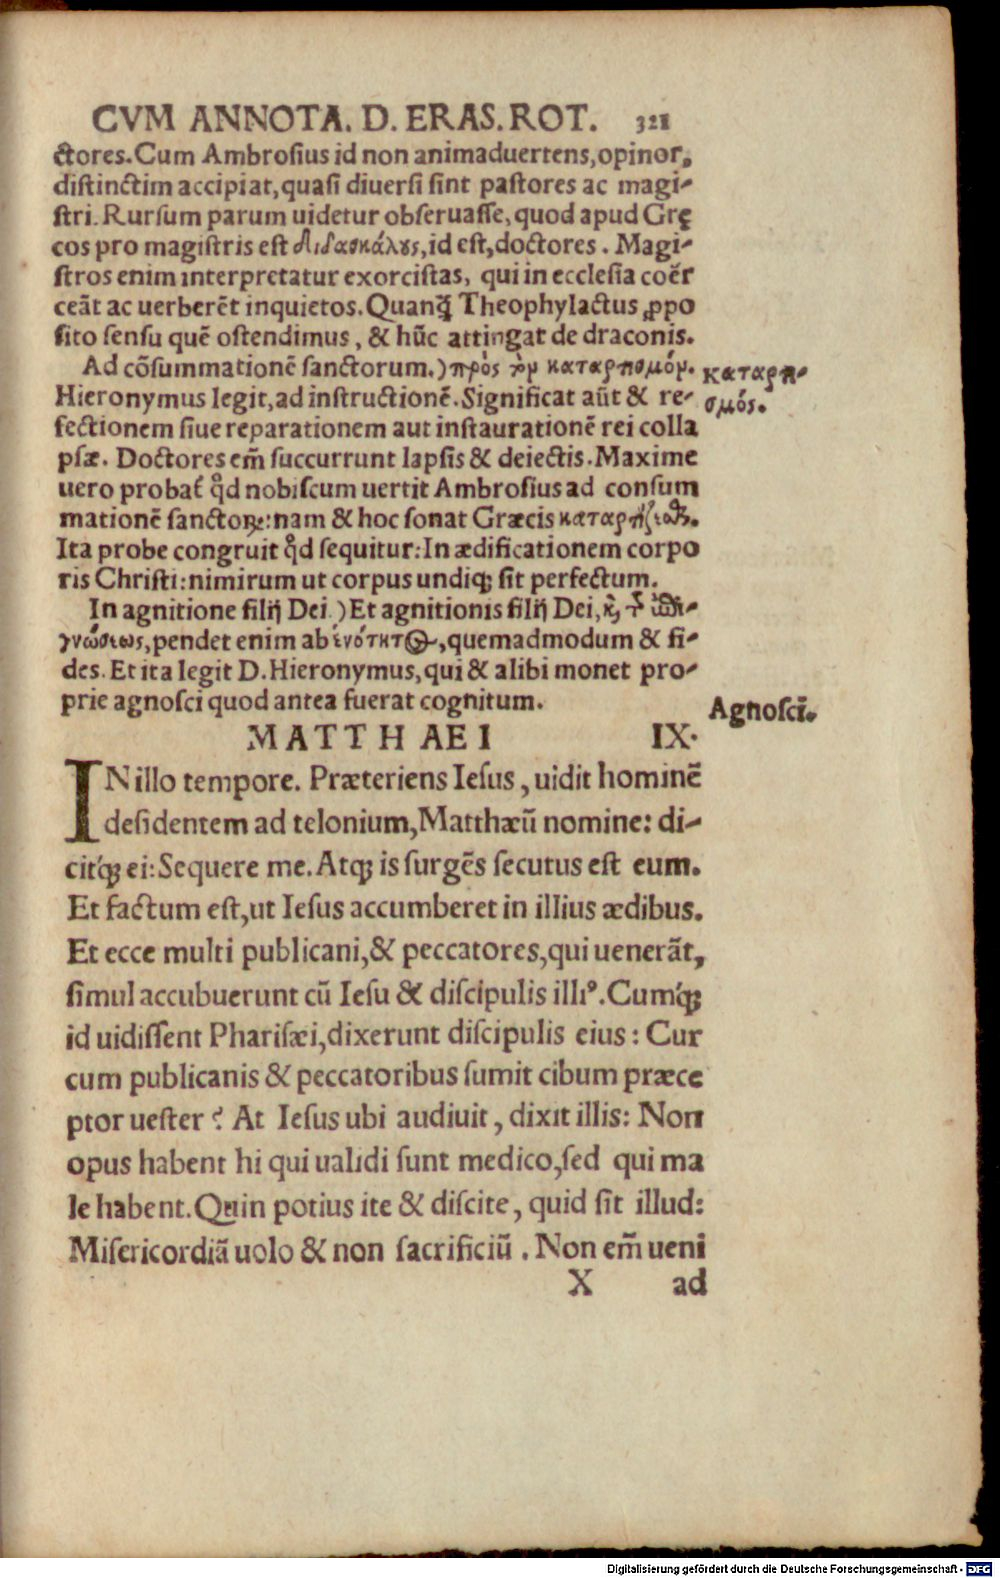 CVM ANNOTA. D. ERAS. ROT. 321
ctores. Cum Ambrosius id non animaduertens, opinor,
distinctim accipiat, quasi diuersi sint pastores ac magi-
stri. Rursum parum uidetur obseruasse, quod apud Gręcos
cos pro magistris est διδασκάλους, id est, doctores. Magi-
stros enim interpretatur exorcistas, qui in ecclesia coẽr
ceãt ac uerberẽt inquietos. Quanꝗ̃ Theophylactus ꝓpo
sito sensu quẽ ostendimus, & hũc attingat de draconis.
Ad cõsummationẽ sanctorum.) πρὸς τὸν καταρτισμόν.
καταρτι-
Hieronymus legit, ad instructionẽ. Significat aũt & re-
σμός.
fectionem siue reparationem aut instaurationẽ rei colla
psæ. Doctores em̃ succurrunt lapsis & deiectis. Maxime
uero probat̃ ꝙ̃d nobiscum uertit Ambrosius ad consum
mationẽ sanctoꝝ: nam & hoc sonat Græcis καταρτίζεσθαι.
Ita probe congruit ꝙ̃d sequitur: In ædificationem corpo
ris Christi: nimirum ut corpus undiqꝫ sit perfectum.
In agnitione filij Dei.) Et agnitionis filij Dei, καὶ τῆς ἐπι-
γνώσεως, pendet enim ab ἑνότητος, quemadmodum & fi-
des. Et ita legit D. Hieronymus, qui & alibi monet pro-
prie agnosci quod antea fuerat cognitum.
Agnosci.
MATTHAEI IX.
IN illo tempore. Præteriens Iesus, uidit hominẽ
desidentem ad telonium, Matthæũ nomine: di-
citqꝫ́ ei: Sequere me. Atqꝫ is surgẽs secutus est eum.
Et factum est, ut Iesus accumberet in illius ædibus.
Et ecce multi publicani, & peccatores, qui uenerãt,
simul accubuerunt cũ Iesu & discipulis illiꝰ. Cumqꝫ́
id uidissent Pharisæi, dixerunt discipulis eius: Cur
cum publicanis & peccatoribus sumit cibum præce
ptor uester? At Iesus ubi audiuit, dixit illis: Non
opus habent hi qui ualidi sunt medico, sed qui ma
le habent. Quin potius ite & discite, quid sit illud:
Misericordiã uolo & non sacrificiũ. Non em̃ ueni
X ad
Digitalisierung gefördert durch die Deutsche Forschungsgemeinschaft - DFG